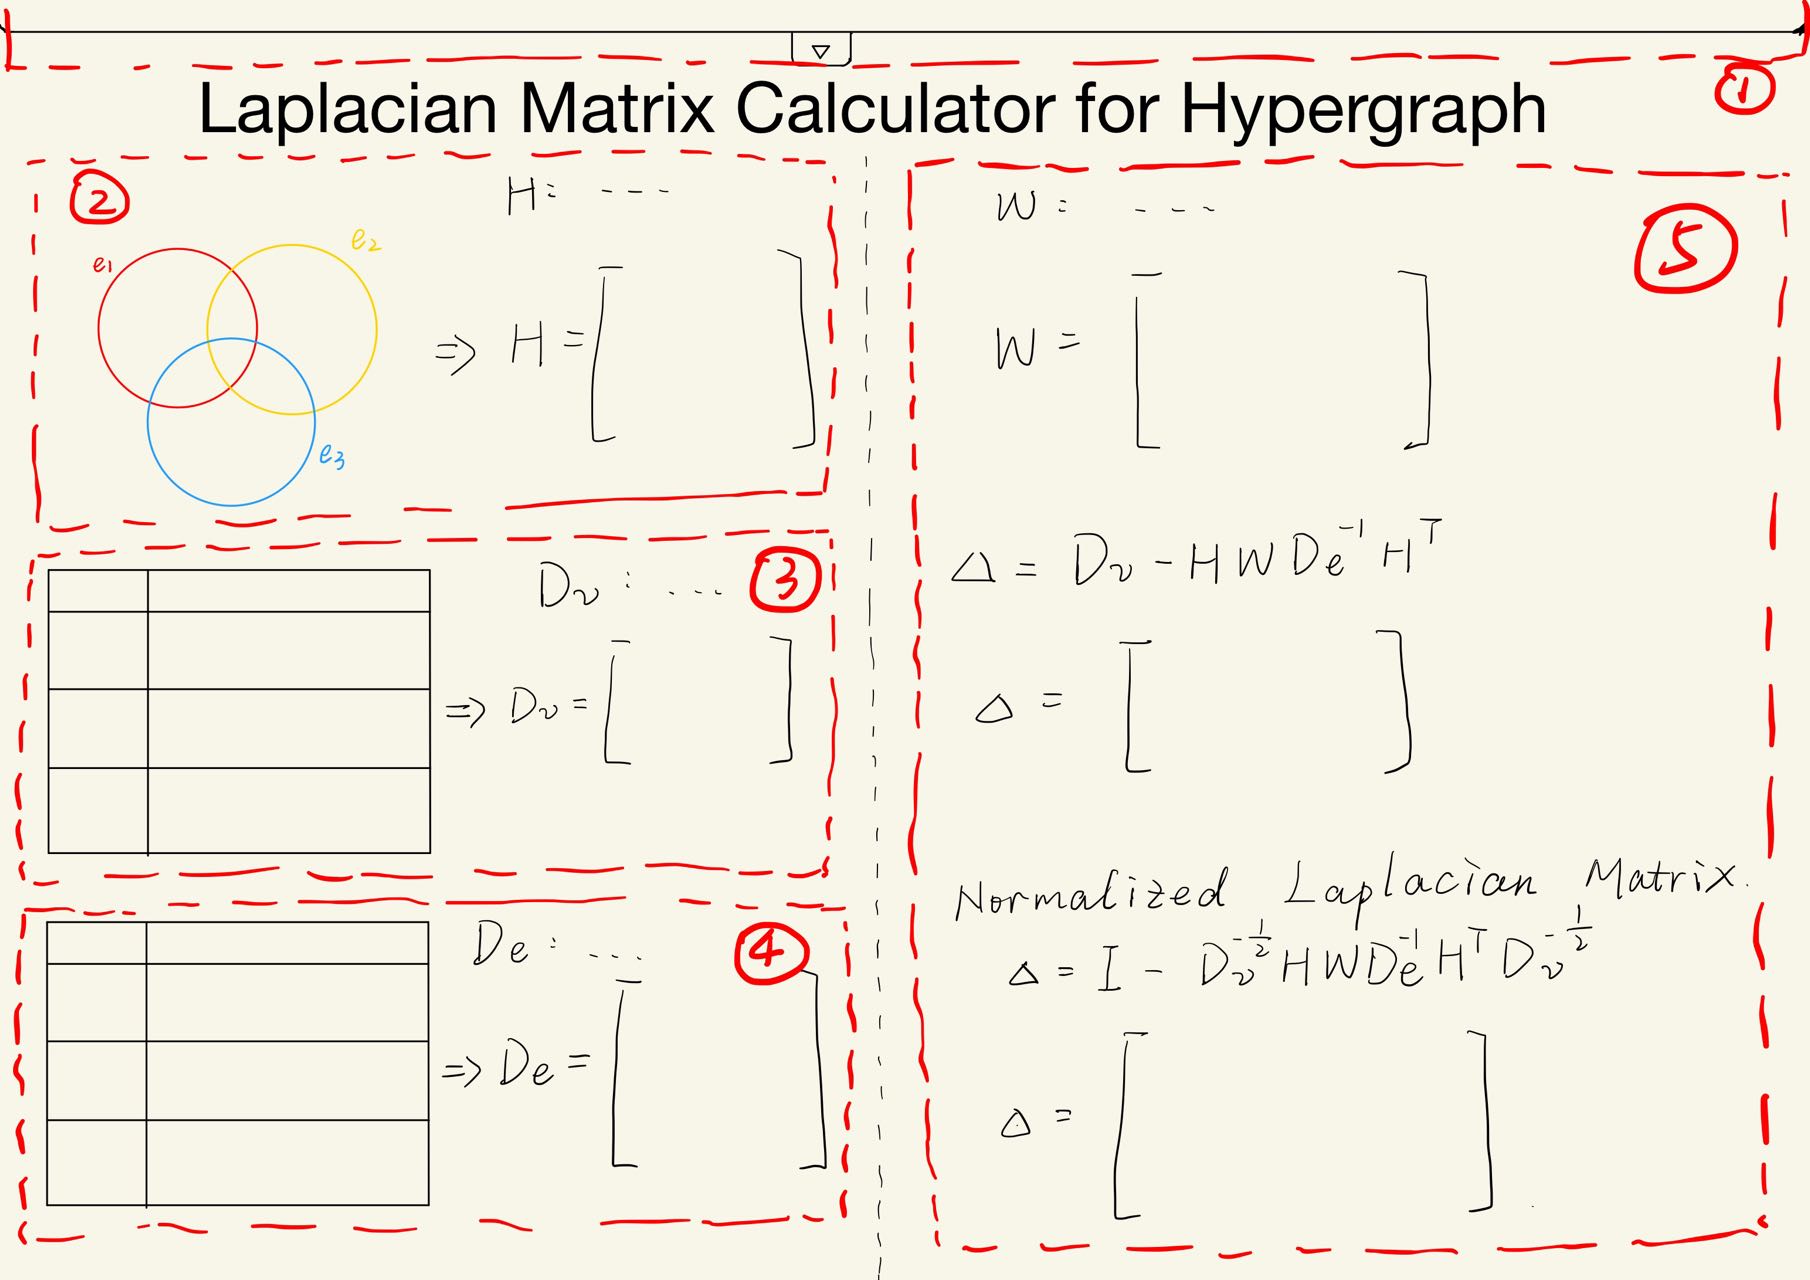 ①
Laplacian Matrix Calculator for Hypergraph
②
H: ---
e₁
e₂
e₃
=> H = [ ]
Dv : ... ③
=> Dv = [ ]
De : ... ④
=> De = [ ]
W : ---
⑤
W = [ ]
Δ = Dv - H W De⁻¹ Hᵀ
Δ = [ ]
Normalized Laplacian Matrix.
Δ = I - Dv^-1/2 H W De⁻¹ Hᵀ Dv^-1/2
Δ = [ ]